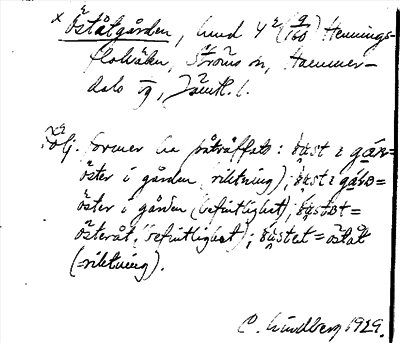 x Öståtgården, hmd 4² (9/160) Hennings-
flohåln, Ströms sn, Hammer-
dals tg, Jämtl. l.
Följ. former ha påträffats: ǫ̈ust i gáɽn =
öster i gården (riktning); ǫ̈ust i gáɽn =
öster i gården (befintlighet); ǫ̈ustǝt =
österåt (befintlighet); ǫ̈ustet = öståt
(=riktning).
C. Lindberg 1929.